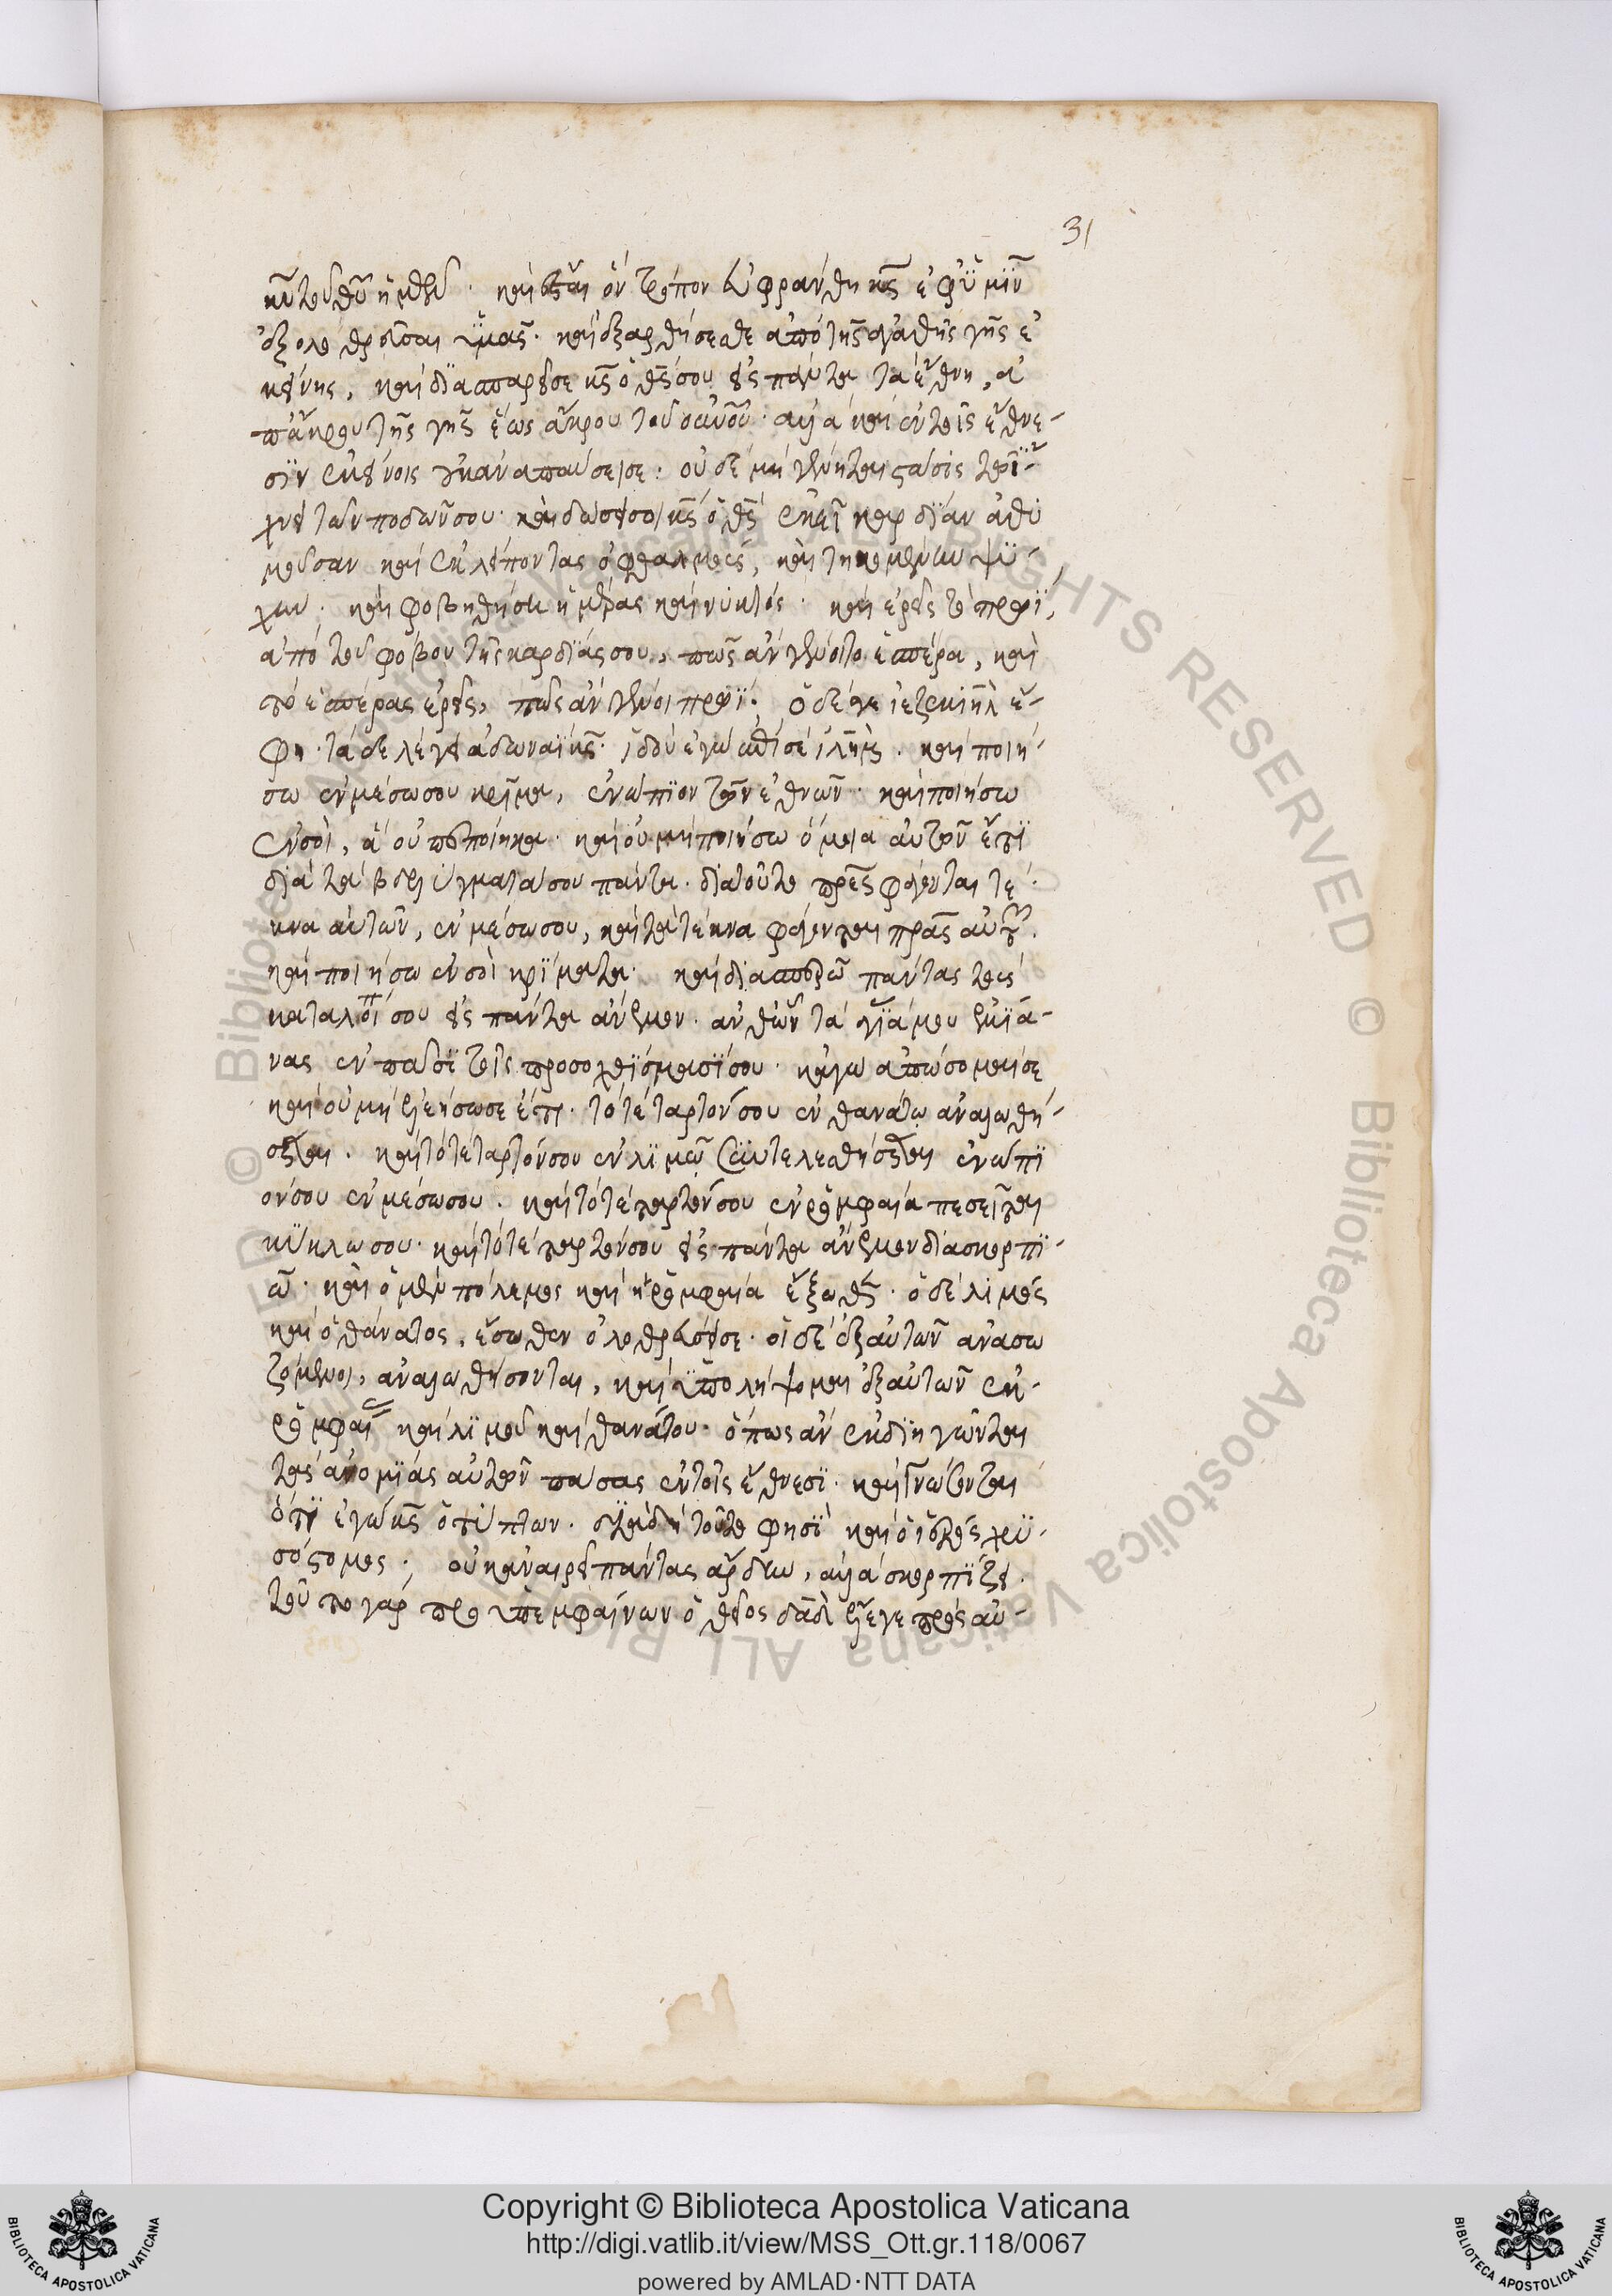 31
κυ του θυ ἡμῶν · καὶ ἔσται ὃν τρόπον εὐφράνθη κς ἐφ ὑμῖν
ἐξολοθρεῦσαι ὑμᾶς · καὶ ἐξαρθήσεσθε ἀπὸ τῆς ἀγαθῆς γῆς ἐ
κείνης, καὶ διασπαρεῖ σε κς ὁ θς σου εἰς πάντα τὰ ἔθνη, ἀ
π' ἄκρου τῆς γῆς ἕως ἄκρου τοῦ οὐνοῦ · ἀλλὰ καὶ ἐν τοῖς ἔθνε-
σιν ἐκείνοις οὐκ ἀναπαύσει σε · οὐδὲ μὴ γένηται στάσις τῷ ἴ-
χνει τῶν ποδῶν σου · καὶ δώσει σοι κς ὁ θς ἐκεῖ καρδίαν ἀθυ
μοῦσαν καὶ ἐκλείποντας ὀφθαλμοὺς, καὶ τηκομένην ψυ-
χὴν · καὶ φοβηθήσῃ ἡμέρας καὶ νυκτός · καὶ ἐρεῖς τὸ πρωῒ,
ἀπὸ τοῦ φόβου τῆς καρδίας σου, πῶς ἂν γένοιτο ἑσπέρα, καὶ
τὸ ἑσπέρας ἐρεῖς, πῶς ἂν γένοι πρωΐ · ὁ δέ γε ἰεζεκιὴλ ἔ-
φη · τάδε λέγει ἀδωναῒ κς · ἰδοὺ ἐγὼ ἐπί σε ἱλημ · καὶ ποιή-
σω ἐν μέσω σου κρῖμα, ἐνώπιον τῶν ἐθνῶν · καὶ ποιήσω
ἐν σοὶ, ἃ οὐ πεποίηκα · καὶ οὐ μὴ ποιήσω ὅμοια αὐτῶν ἔτι
διὰ τὰ βδελύγματά σου πάντα · διατοῦτο πρες φάγονται τέ-
κνα αὐτῶν, ἐν μέσω σου, καὶ τὰ τέκνα φάγονται πρας αὐτῶν ·
καὶ ποιήσω ἐν σοὶ κρίματα · καὶ διασπερῶ πάντας τοὺς
καταλοίπους σου εἰς πάντα ἄνεμον · ἀνθ' ὧν τὰ ἅγιά μου ἐμία-
νας ἐν πᾶσι τοῖς προσοχθίσμασί σου · κἀγὼ ἀπώσομαί σε
καὶ οὐ μὴ ἐλεήσω σε ἔτι · τὸ τέταρτόν σου ἐν θανάτω ἀναλωθή-
σεται · καὶ τὸ τέταρτόν σου ἐν λιμῶ συντελεσθήσεται ἐνώπι
όν σου ἐν μέσω σου · καὶ τὸ τέταρτόν σου ἐν ρομφαία πεσεῖται
κύκλω σου · καὶ τὸ τέταρτόν σου εἰς πάντα ἄνεμον διασκορπι-
ῶ · καὶ ὁ μὲν πόλεμος καὶ ἡ ρομφαία ἔξωθεν · ὁ δὲ λιμὸς
καὶ ὁ θάνατος, ἔσωθεν ὀλοθρεύσει σε · οἱ δὲ ἐξ αὐτῶν ἀνασω
ζόμενοι, ἀναλωθήσονται, καὶ ὑπολήψομαι ἐξ αὐτῶν ἐκ
ρομφαίας καὶ λιμοῦ καὶ θανάτου · ὅπως ἂν ἐκδιηγῶνται
τὰς ἀνομίας αὐτῶν πάσας ἐν τοῖς ἔθνεσι · καὶ γνώσονται
ὅτι ἐγὼ κς ὁ τύπτων · φησὶ καὶ ὁ χρυ-
σόστομος · οὐκ ἀναιρεῖ πάντας ἄρδην, ἀλλὰ σκορπίζει ·
τοῦτο γὰρ προϋπεμφαίνων ὁ θεῖος δαδ ἔλεγε πρὸς αὐ-